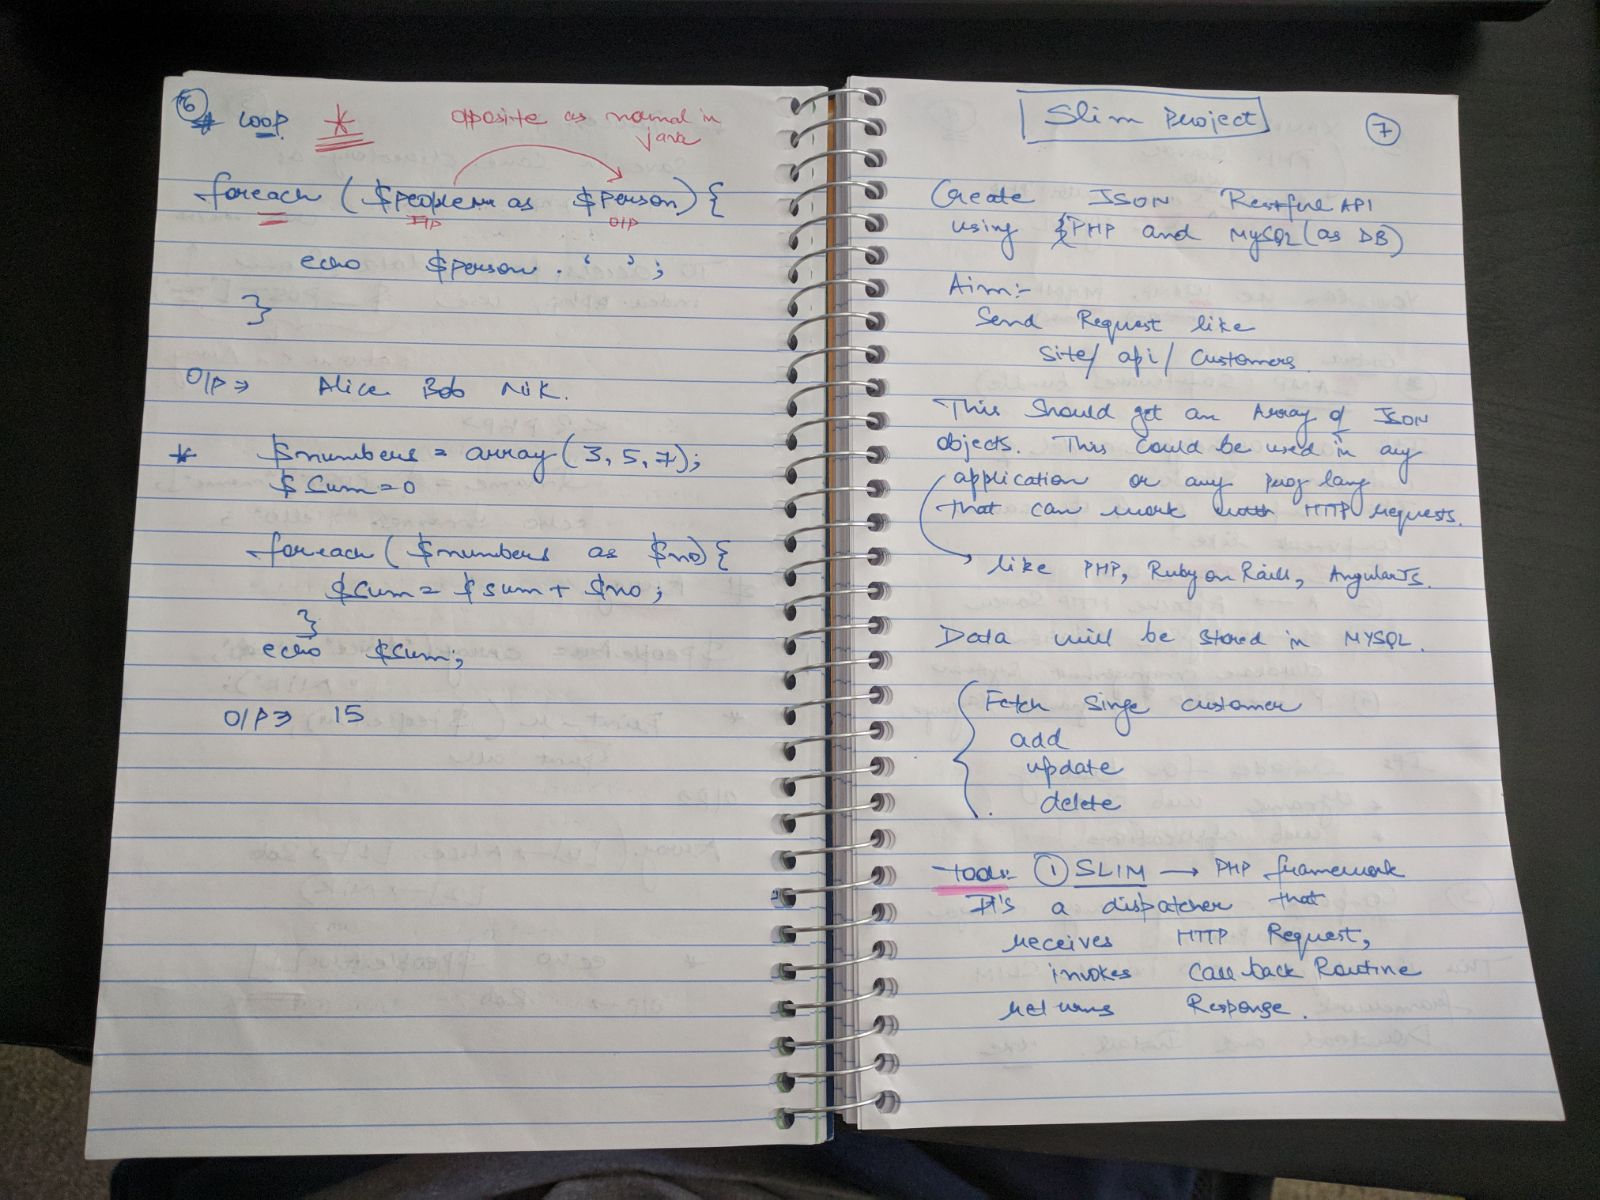 6
* Loop *
opposite as normal in
java
foreach ($people as $person) {
I/P O/P
echo $person . ' ';
}
O/P => Alice Bob Nik.
* $numbers = array (3, 5, 7);
$sum = 0
foreach ($numbers as $no) {
$sum = $sum + $no;
}
echo $sum;
O/P => 15
Slim Project
7
Create JSON Restful API
using PHP and MySQL (as DB)
Aim:-
Send Request like
Site/ api/ Customers.
This should get an Array of JSON
objects. This could be used in any
application or any prog lang
that can work with HTTP requests.
like PHP, Ruby on Rails, AngularJS.
Data will be stored in MYSQL.
Fetch Singe customer
add
update
delete
Tools:- 1 SLIM → PHP framework
It's a dispatcher that
receives HTTP Request,
invokes Call back Routine
returns Response.